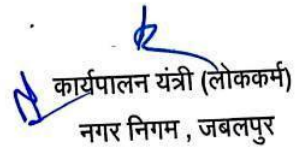 कार्यपालन यंत्री (लोककर्म)
नगर निगम , जबलपुर